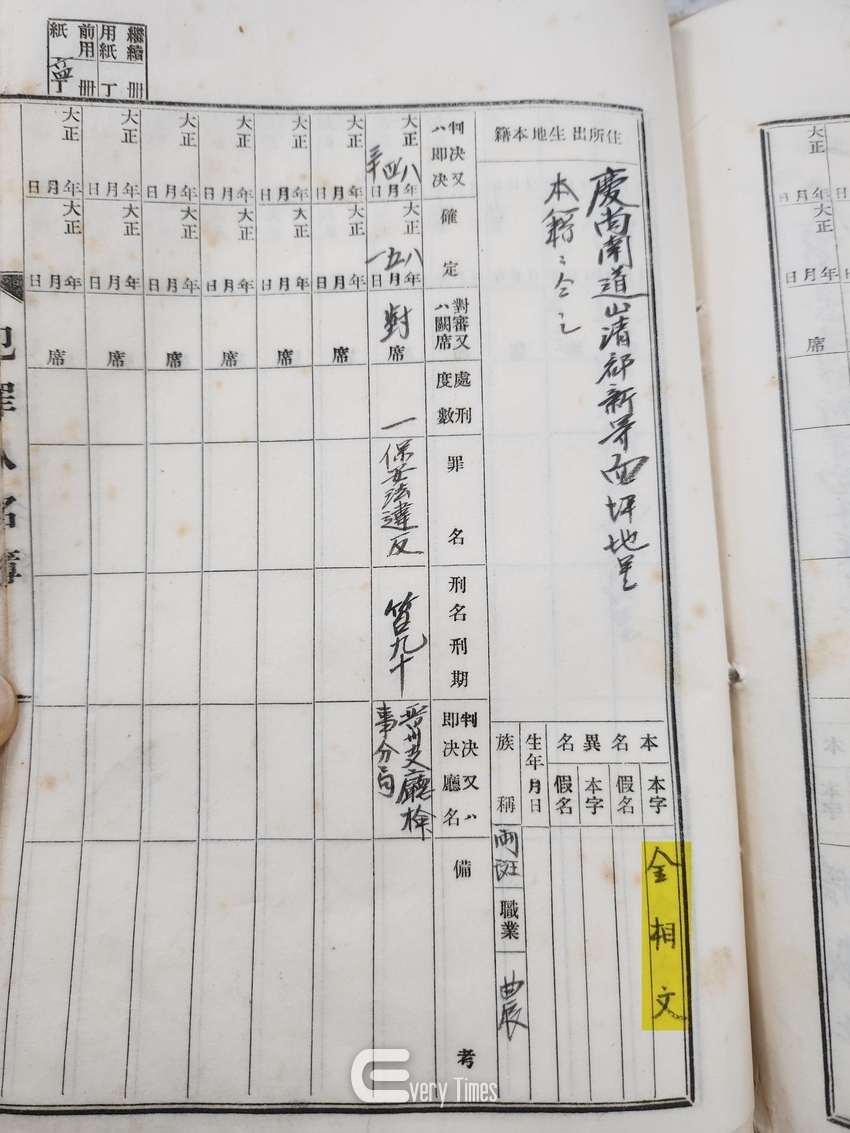 繼續 冊
用紙 丁
前用 冊
紙 丁
住所出生地本籍
慶尚南道山淸郡新等面坪地里
本籍ニ仝シ
本名
本字
金相文
假名
異名
本字
假名
生年月日
族稱
両班
職業
農
判決又ハ即決
確定
對審又ハ闕席
處刑度數
罪名
刑名刑期
判決又ハ即決廳名
備考
大正八年四月
大正八年五月一日
對席
一
保安法違反
笞九十
晋州支廳檢事分局
大正 年月日
大正 年月日
席
大正 年月日
大正 年月日
席
大正 年月日
大正 年月日
席
大正 年月日
大正 年月日
席
大正 年月日
大正 年月日
席
大正 年月日
大正 年月日
席
犯罪人名簿
大正 年月日
大正 年月日
席
Every Times